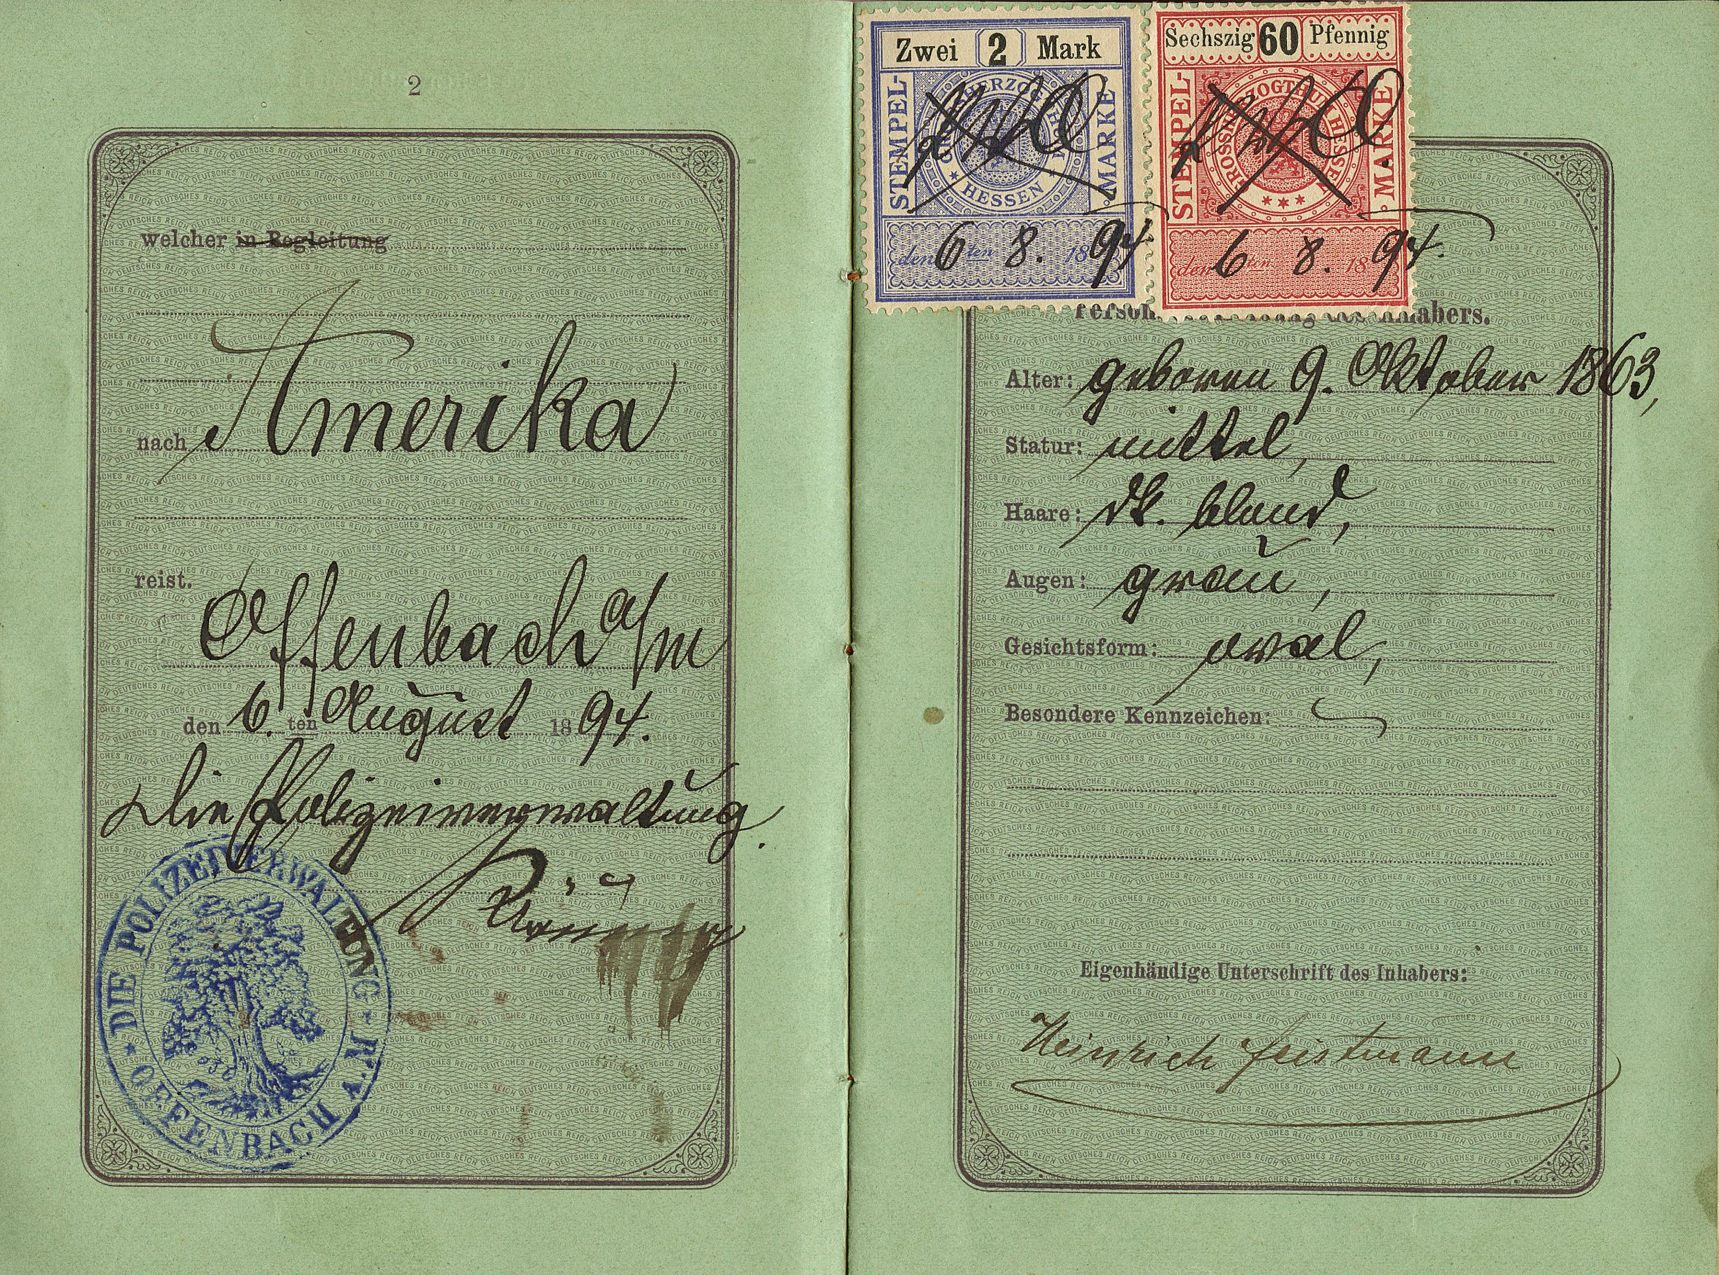 2
welcher in Begleitung
nach Amerika
reist.
Offenbach a/m
den 6. ten August 1894.
Die Polizeiverwaltung.
DIE POLIZEIVERWALTUNG * OFFENBACH
Zwei 2 Mark
STEMPEL-MARKE
HESSEN
den 6 ten 8. 1894
Sechszig 60 Pfennig
STEMPEL-MARKE
GROSSHERZOGTHUM HESSEN
den 6 ten 8. 1894.
Alter: geboren 9. Oktober 1863,
Statur: mittel,
Haare: dk. blond,
Augen: grau,
Gesichtsform: oval,
Besondere Kennzeichen:
Eigenhändige Unterschrift des Inhabers:
Heinrich Feistmann